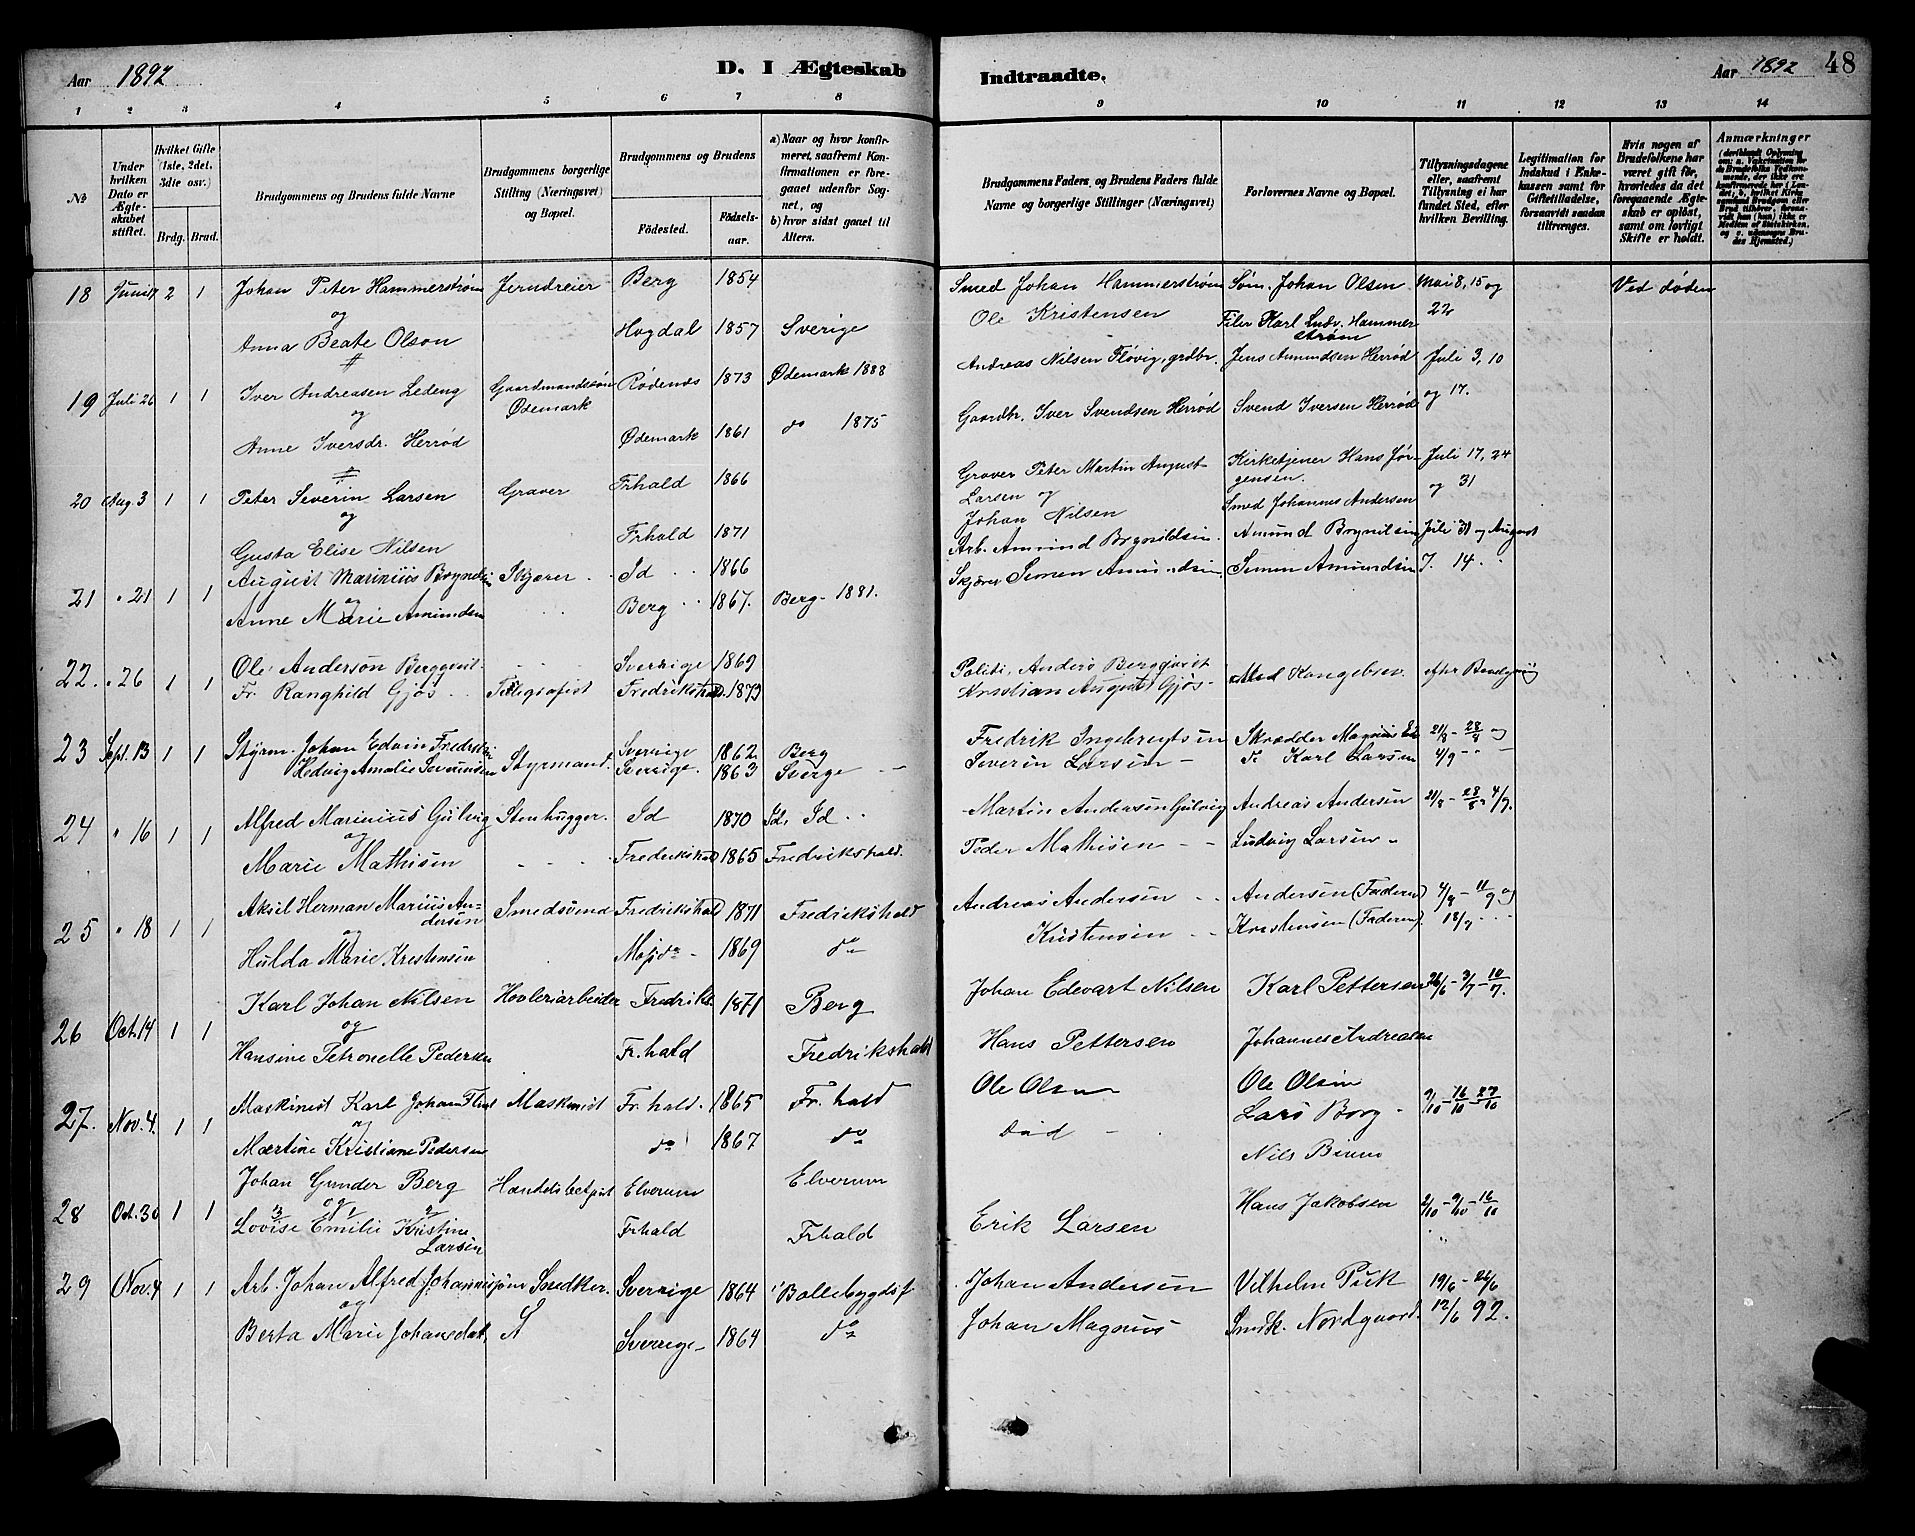 Aar 1892
D. I Ægteskab
Indtraadte.
Aar 1892 48
1 2 3 4 5 6 7 8 9 10 11 12 13 14
№
Under hvilken Dato er Ægteskabet stiftet.
Hvilket Gifte (1ste, 2det, 3die osv.)
Brdg. Brud.
Brudgommens og Brudens fulde Navne
Brudgommens borgerlige Stilling (Næringsvei) og Bopæl.
Brudgommens og Brudens
Fødested.
Fødselsaar.
a) Naar og hvor konfirmeret, saafremt Konfirmationen er foregaaet udenfor Sognet, og
b) hvor sidst gaaet til Alters.
Brudgommens Faders, og Brudens Faders fulde Navne og borgerlige Stillinger (Næringsvei)
Forlovernes Navne og Bopæl.
Tillysningsdagene eller, saafremt Tillysning ei har fundet Sted, efter hvilken Bevilling.
Legitimation for Indskud i Enkekassen samt for Giftetilladelse, forsaavidt saadan tiltrænges.
Hvis nogen af Brudefolkene har været gift før, hvorledes da det foregaaende Ægteskab er opløst, samt om lovligt Skifte er holdt.
Anmærkninger
18 Juni 2 1 Johan Peter Hammerstrøm Jerndreier Berg 1854 Smed Johan Hammerstrøm Søm. Johan Olsen Mai 8, 15 og Ved døden
og Ole Kristensen Filer Karl Ludv. Hammerstrøm 22
Anna Beate Olson Hogdal 1857 Sverige
19 Juli 26 1 1 Iver Andreasen Ledeng Gaardmandssøn Rødenæs 1873 Ødemark 1888 Andreas Nilsen Fløvig, grdbr. Jens Amundsen Herrød Juli 3, 10
og Ødemark Gaardbr. Iver Svendsen Herrød Svend Iversen Herrød og 17.
Anne Iversdr. Herrød Ødemark 1861 do 1875
20 Aug. 3 1 1 Peter Severin Larsen Graver Frhald 1866 Graver Peter Martin August Kirketjener Hans Jør- Juli 17, 24
og Larsen og gensen. og 31
Gusta Elise Nilsen Frhald 1871 Johan Nilsen Smed Johannes Andersen
21 " 21 1 1 August Marinius Bryneldsin Skjærer Id 1866 Arb. Amund Brynildsin Amund Brynilsin Juli 31 og August
og Skjærer Simen Amundsin Simen Amundsin 7. 14.
Anne Marie Amundsen Berg 1867. Berg - 1881.
22. " 26 1 1 Ole Anderson Bergqvist Sverrige 1869 Politi. Anders Bergqvist Med Kongebrev. efter Bevilgning
Fr. Ranghild Gjøs Telegrafist Fredrikshald 1873 Kristian August Gjøs
23 Sept. 13 1 1 Styrm. Johan Edvin Fredriksin Sverrige 1862 Berg Fredrik Ingebregtsin Skrædder Magnus 21/8 - 28/8 og
Hedvig Amalie Severinsen Styrmand. Sverrige. 1863 Sverge Severin Larsin Karl Larsen 4/9
24 " 16 1 1 Alfred Marinius Gulvig Stenhugger. Id 1870 Id. Id Martin Andersin Gulvig Andreas Andersin 21/8 - 28/8 4/9.
og
Marie Mathisin Fredrikshald 1865 Fredrikshald. Peder Mathisen Ludvig Larsen
25 " 18 1 1 Aksel Herman Marius An- Smedsvend Fredrikshald 1871 Fredrikshald Andreas Andersin Andersin (Faderen) 4/9 - 11/9 og
dersin
og Kristensin Kristensin (Faderen). 18/9
Hulda Marie Kristensin do 1869 do
26 Oct. 14 1 1 Karl Johan Nilsen Høvleriarbeider Fredriks 1871 Berg Johan Edevart Nilsen Karl Pettersen 26/6 - 3/7 - 10/7.
og
Hansine Petronelle Pedersen Fr. hald Fredrikshald Hans Pettersen Johannes Andreasen
27. Nov. 4. 1 1 Maskinist Karl Johan Maskinist Fr. hald. 1865 Fr. hald Ole Olsen Ole Olsin 9/10 - 16/10 - 23/10
og Lars Borg
Martine Kristiane Pedersen do 1867 do død Nils
28 Oct. 30 1 1 Johan Gunder Berg Handelsbetjent Elverum Elverum Hans Jakobsen 2/10 - 9/10 - 16/10
og
Lovise Emilie Kristine Frhald Frhald Erik Larsen
Larsin
29 Nov. 4 1 1 Arb. Johan Alfred Johannisjøn Snedker. Sverrige 1864 Bollebygds f Johan Andersen Vilhelm 19/6 - 26/6
og
Berta Marie Johansdat. Sverrige 1864 do Johan Magnus Smedk. Nordgaard 12/6 92.